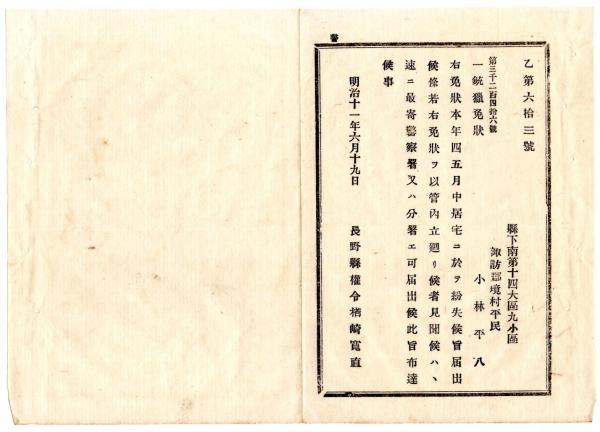 乙第六拾三號
縣下南第十四大區九小區
諏訪郡境村平民
小林平八
第三千二百四拾六號
一銃獵免狀
右免狀本年四五月中居宅ニ於テ紛失候旨届出
候條若右免狀ヲ以管内立廻リ候者見聞候ハヽ
速ニ最寄警察署又ハ分署エ可届出候此旨布達
候事
明治十一年六月十九日
長野縣權令楢崎寛直
警